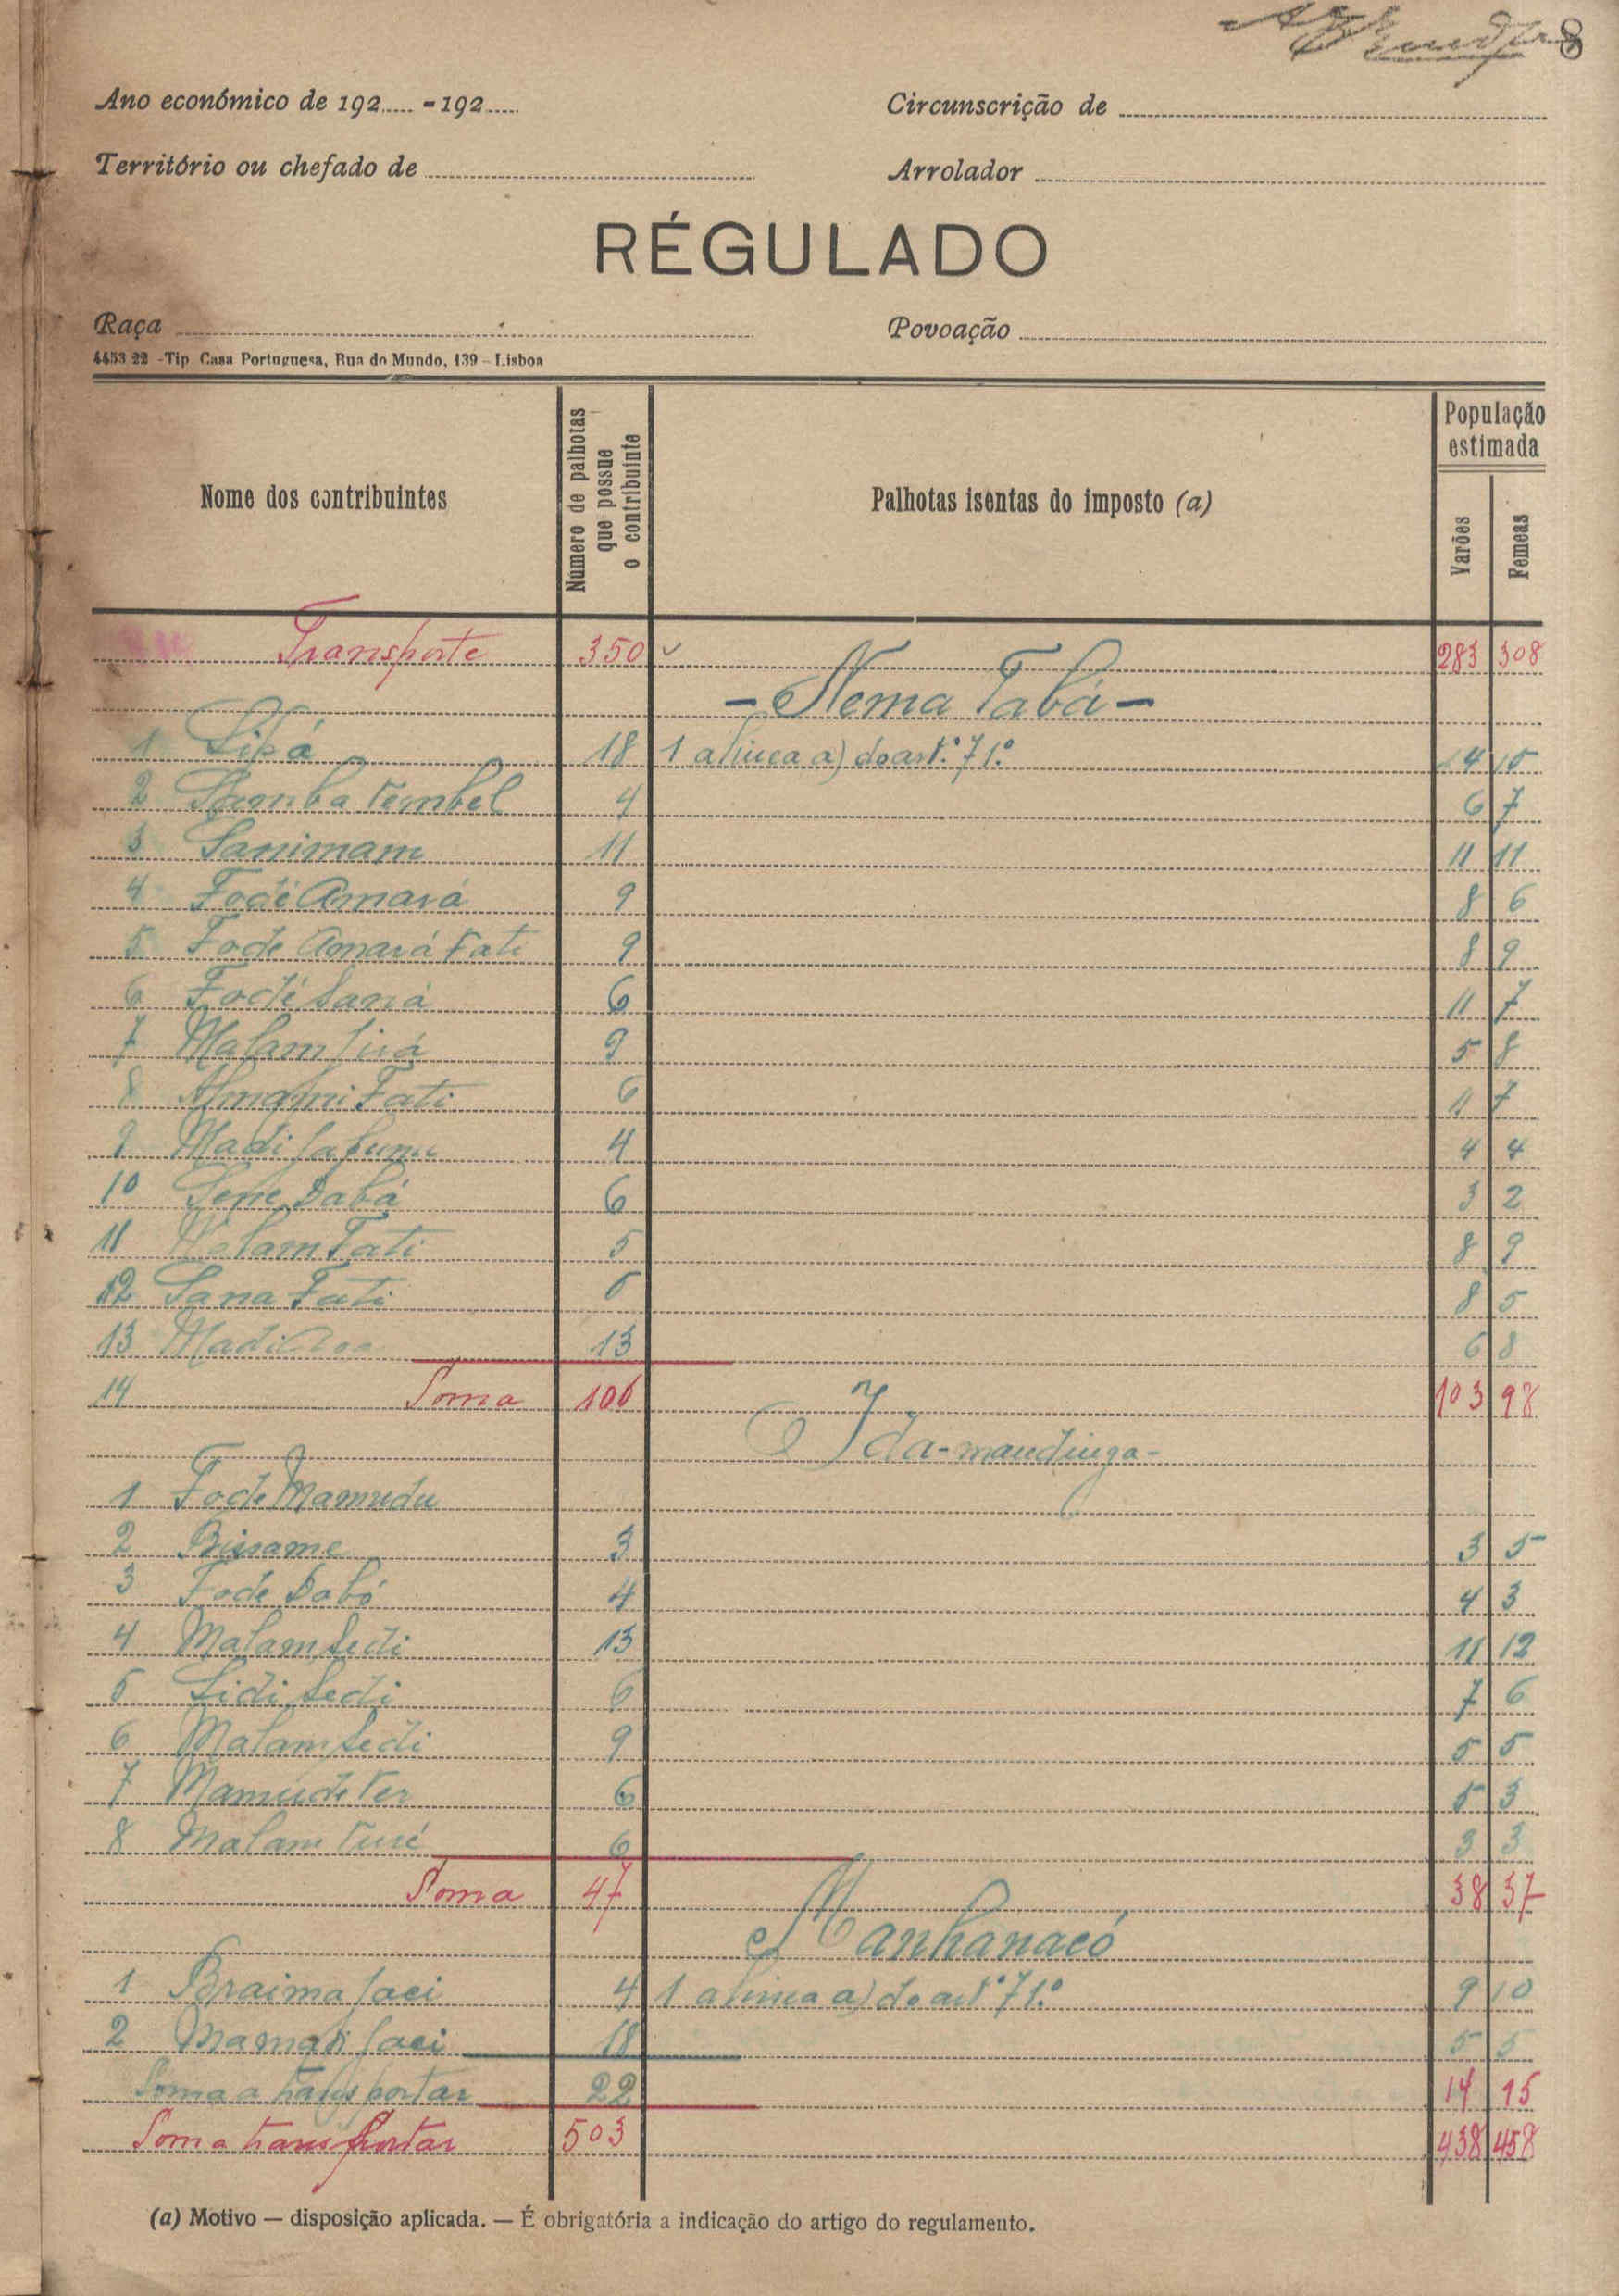 8
Ano económico de 192..... - 192.....
Circunscrição de
Território ou chefado de
Arrolador
RÉGULADO
Raça
Povoação
4453 22 - Tip Casa Portuguesa, Rua do Mundo, 139 - Lisboa
Nome dos contribuintes
Número de palhotas que possue o contribuinte
Palhotas isentas do imposto (a)
População estimada
Varões
Femeas
Transporte 350 283 308
- Nema Tabá -
1 18 1 alinea a) do art.º 71.º 14 10
2 Samba 4 6 7
3 Sanimam 11 11 11
4 Fodé Amará 9 8 6
5 Fode Amará Fati 9 8 9
6 Fodé Saná 6 11 7
7 Malam 9 5 8
8 Almami Fati 6 11 7
9 Madi 4 4 4
10 Sene Dabá 6 3 2
11 Malam Fati 5 8 9
12 Sana Fati 6 8 5
13 Madi 13 6 8
14 Soma 106 103 98
Ida-mandinga-
1 Fode Mamudu
2 3 3 5
3 Fode Dabó 4 4 3
4 Malam Sedi 13 11 12
5 Sidi Sedi 6 7 6
6 Malam Sedi 9 5 5
7 6 5 3
8 Malam Turé 6 3 3
Soma 47 38 37
Manhanacó
1 Braima Saci 4 1 alinea a) do art.º 71.º 9 10
2 Saci 18 5 5
Soma a transportar 22 14 15
Soma transportar 503 438 458
(a) Motivo — disposição aplicada. — É obrigatória a indicação do artigo do regulamento.